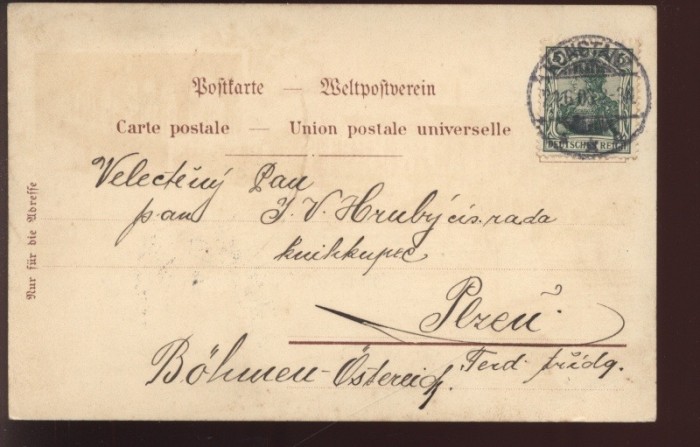 Postkarte — Weltpostverein
Carte postale — Union postale universelle
KONSTANZ
DEUTSCHES REICH
Nur für die Adresse
Velectěný Pan
pan J. V. Hrubý cís. rada
knihkupec
Plzeň
Ferd. třída.
Böhmen-Östereich.